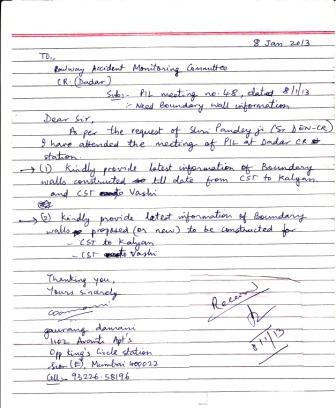 8 Jan 2013
To,
Railway Accident Monitoring Committee
CR. (Dadar)
Sub:- PIL meeting no. 48, dated 8/1/13
:- Need Boundary wall information
Dear Sir,
As per the request of Shri Pandey ji (Sr DEN-CR)
I have attended the meeting of PIL at Dadar CR
station.
→ (1) Kindly provide latest information of Boundary
walls constructed till date from CST to Kalyan
and CST to Vashi
→ (2) Kindly provide latest information of Boundary
walls proposed (or new) to be constructed for
- CST to Kalyan
- CST to Vashi
Thanking you,
Yours sincerely
gaurang damani
1102 Avanti Apt's
Opp King's Circle station
Sion (E), Mumbai 400022
Cell:- 93226 58196
Received
8/1/13